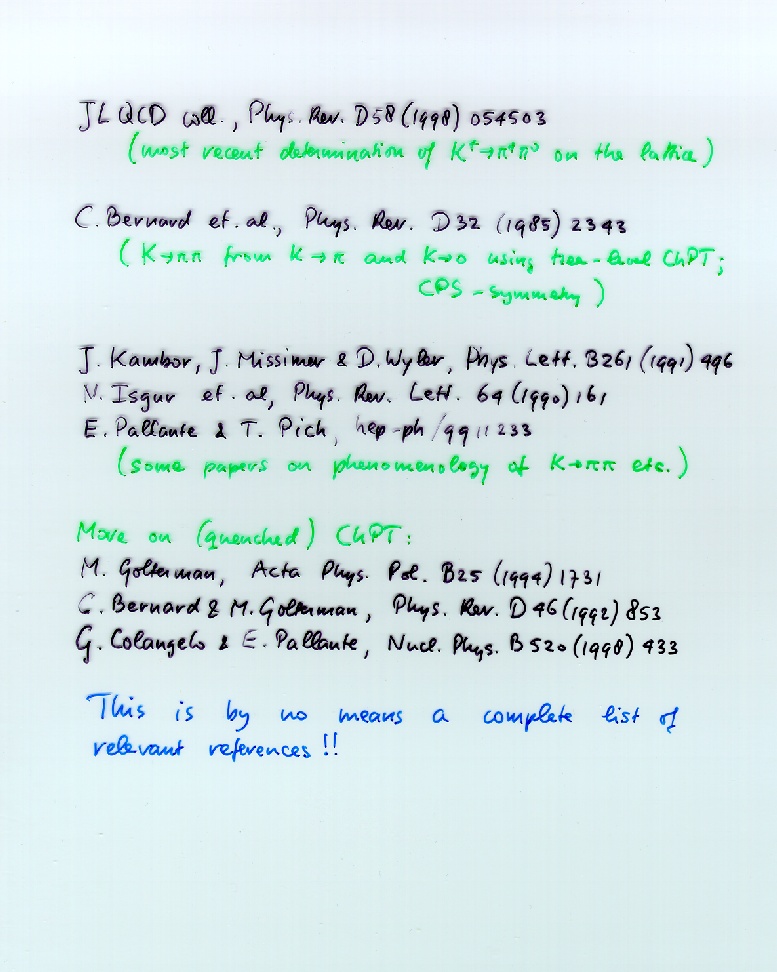 JLQCD coll., Phys. Rev. D58 (1998) 054503
(most recent determination of K⁺→π⁺π⁰ on the lattice)
C. Bernard et. al., Phys. Rev. D32 (1985) 2343
(K→ππ from K→π and K→0 using tree-level ChPT;
CPS-symmetry)
J. Kambor, J. Missimer & D. Wyler, Phys. Lett. B261 (1991) 496
N. Isgur et. al, Phys. Rev. Lett. 64 (1990) 161
E. Pallante & T. Pich, hep-ph/9911233
(some papers on phenomenology of K→ππ etc.)
More on (quenched) ChPT:
M. Golterman, Acta Phys. Pol. B25 (1994) 1731
C. Bernard & M. Golterman, Phys. Rev. D46 (1992) 853
G. Colangelo & E. Pallante, Nucl. Phys. B520 (1998) 433
This is by no means a complete list of
relevant references!!